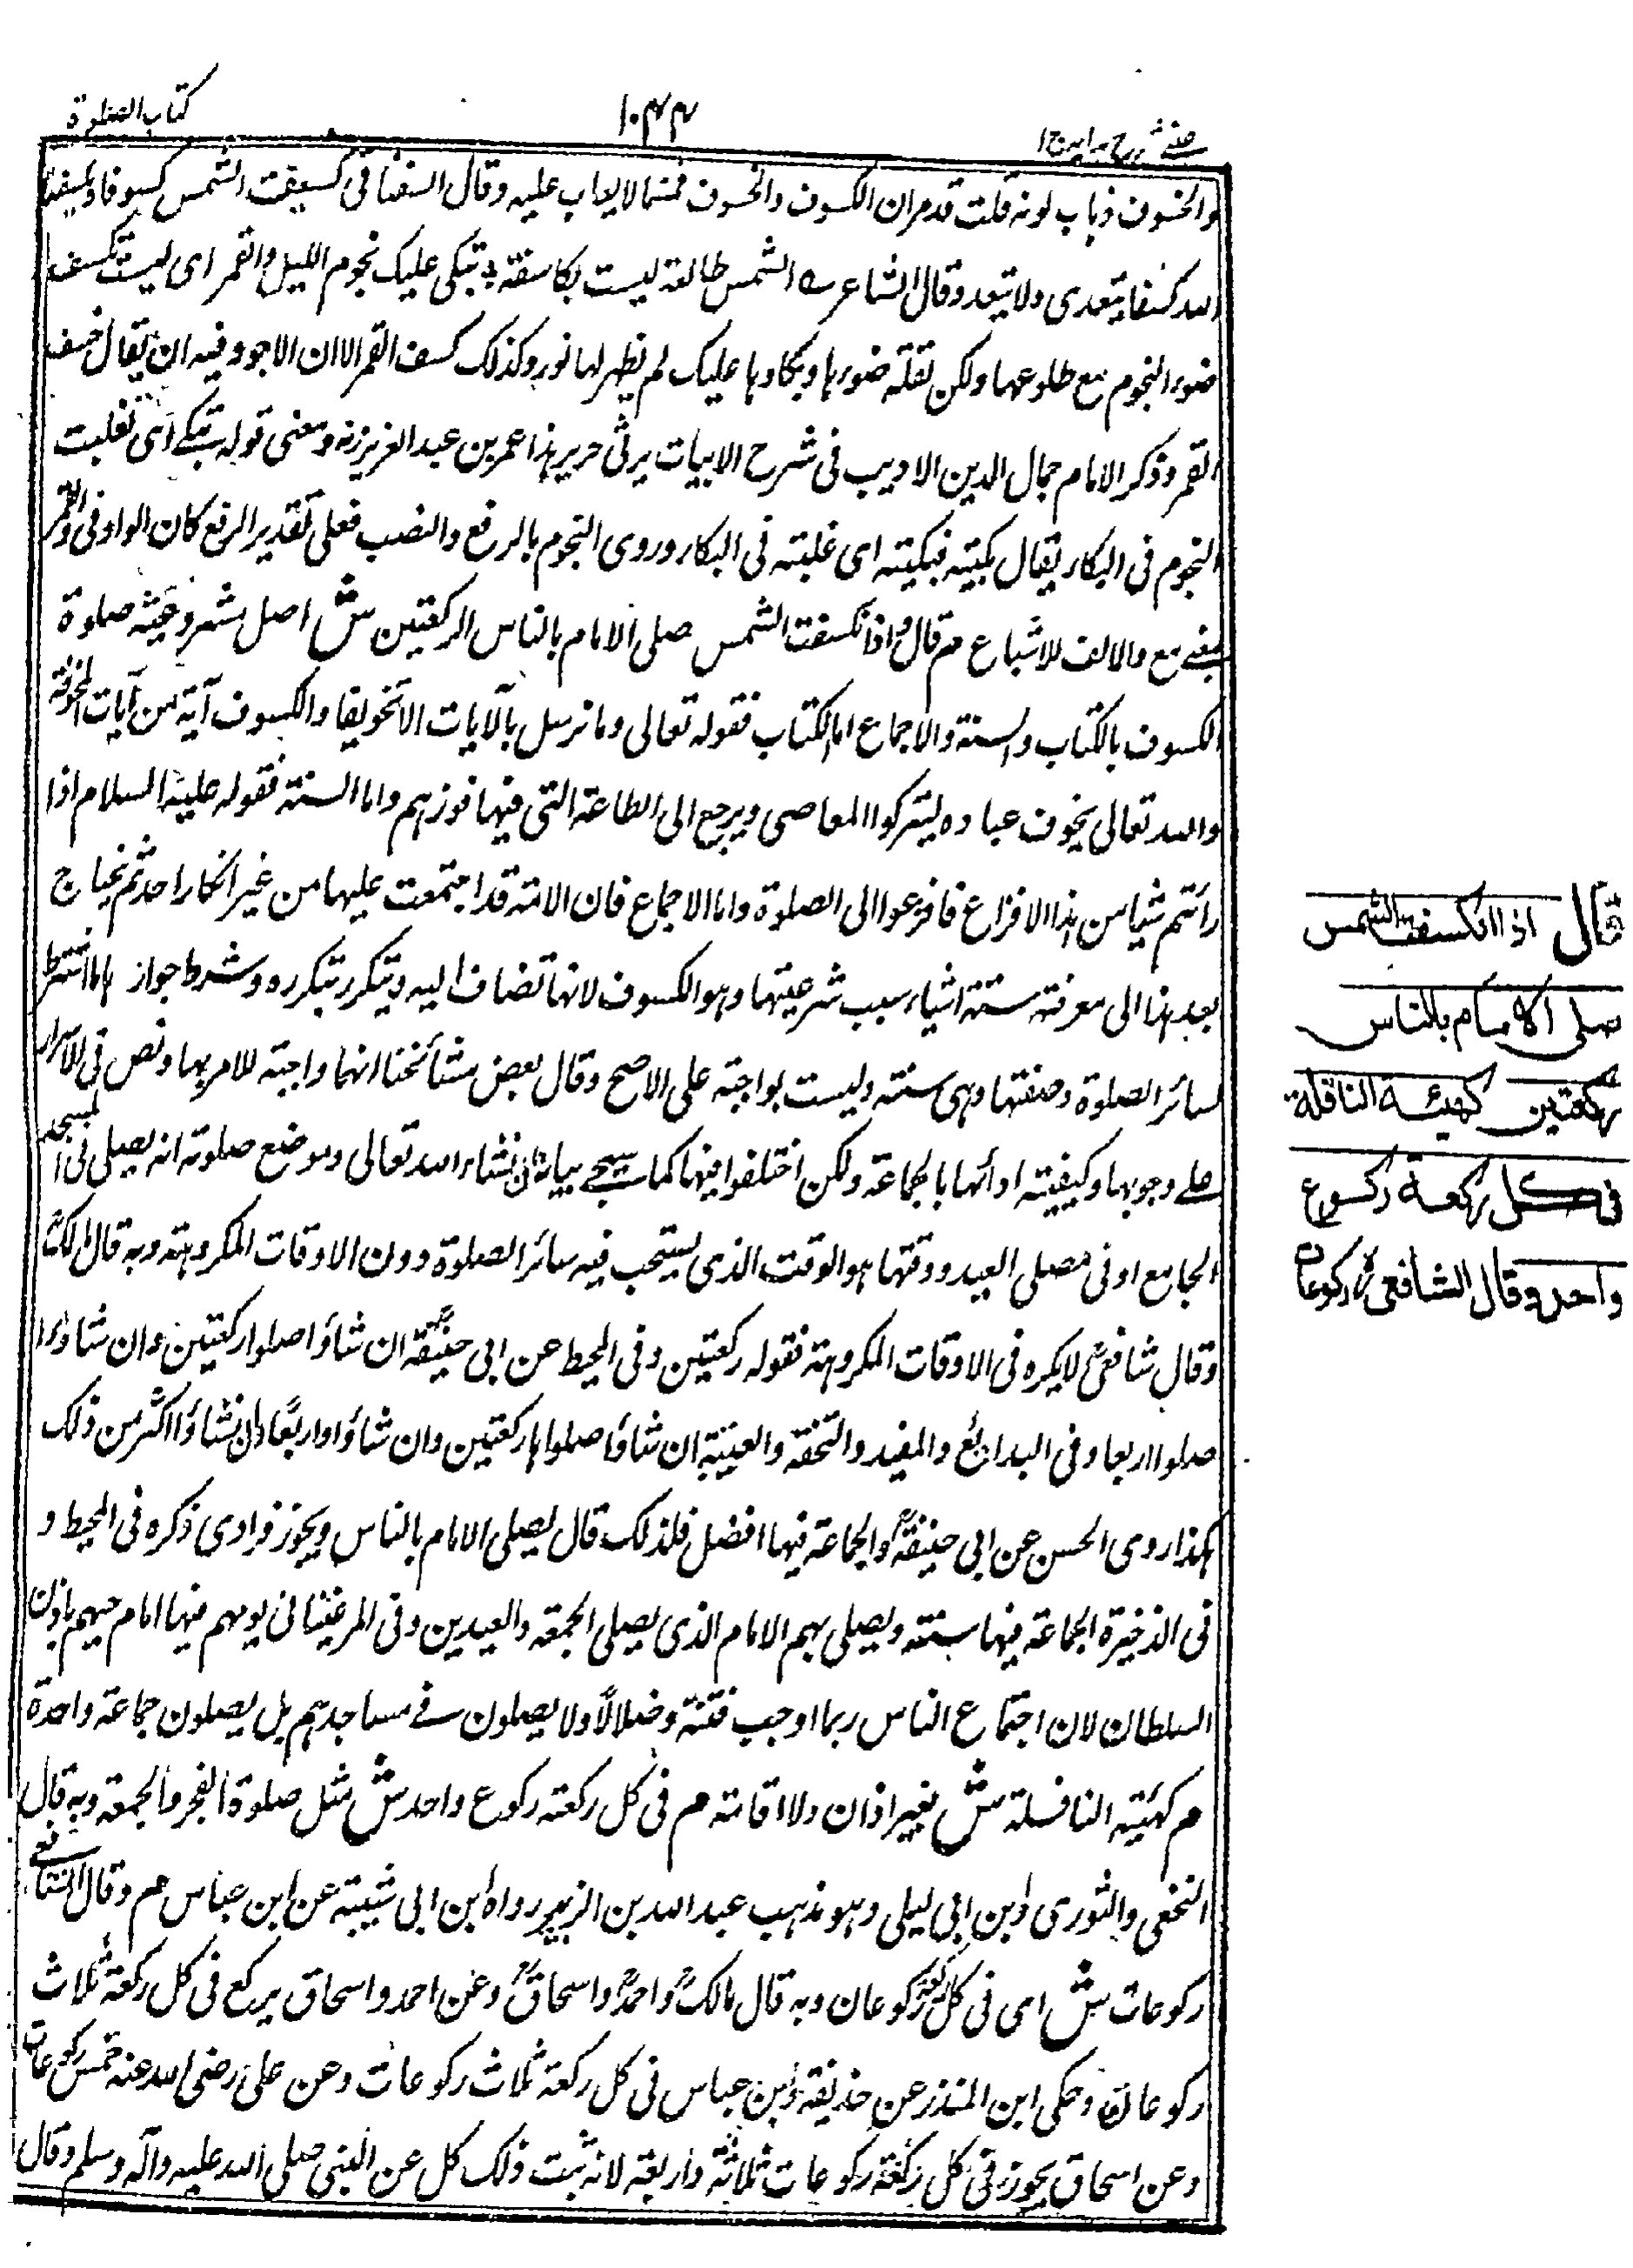 عینی شرح ہدایہ ج ا
۱۰۴۴
کتاب الصلوة
والخسوف ذہاب لونہ قلت قدمر ان الکسوف والخسوف فمنہما لایعاب علیہ وقال السغناقی کسیفت الشمس کسوفا
اللہ کسفا یتعدی ولا یتعد وقال الشاعر ے الشمس طالعة لیست بکاسفة ؛ تبکی علیک نجوم اللیل والقمر ای لیست تکسف
ضوء النجوم مع طلوعہا ولکن لقلة ضوءہا وبکاوہا علیک لم یظہر لہا نور وکذلک کسف القمر الا ان الاجود فیہ ان یقال خسف
القمر وذکر الامام جمال الدین الادیب فی شرح الابیات یرثی جریر ہذا عمر بن عبد العزیز رح ومعنی قولہ تبکے ای تغلبت
النجوم فی البکاء یقال بکیتہ فبکیتہ ای غلبتہ فی البکاء وروی النجوم بالرفع والنصب فعلی تقدیر الرفع کان الواو فی والقمر
بمعنے مع والالف للاشباع م قال واذا انکسفت الشمس صلی الامام بالناس الرکعتین ش اصل مشروعیتہ صلوة
الکسوف بالکتاب والسنة والاجماع اما الکتاب فقولہ تعالی وما نرسل بالآیات الا تخویفا والکسوف آیة من آیات المخوفة
واللہ تعالی یخوف عبادہ لیترکوا المعاصی ویرجع الی الطاعة التی فیہا فوزہم واما السنة فقولہ علیہ السلام اذا
رائتم شیا من ہذا الافزاع فافزعوا الی الصلوة واما الاجماع فان الامة قد اجتمعت علیہا من غیر انکار احد ثم یحتاج
بعد ہذا الی معرفة ستة اشیاء سبب شرعیتہا وہو الکسوف لانہا تضاف الیہ ویتکرر بتکررہ وشرط جواز ہا ما اشترط
لسائر الصلوة وصفتہا وہی سنتہ ولیست بواجبة علی الاصح وقال بعض مشائخنا انہا واجبة للامر بہا ونص فی الاسرار
علے وجوبہا وکیفیتہ ادائہا بالجماعة ولکن اختلفوا فیہا کما سیجے بیانہ ان شاء اللہ تعالی وموضع صلوتہ انہ یصلی فی المسجد
الجامع او فی مصلی العید ووقتہا ہو الوقت الذی یستحب فیہ سائر الصلوة دون الاوقات المکروہتہ وبہ قال مالک
وقال شافعی لایکرہ فی الاوقات المکروہتہ فقولہ رکعتین وفی المحیط عن ابی حنیفة ان شاؤا صلوا رکعتین وان شاؤا
صلوا اربعا وفی البدائع والمفید والتحفة والعینیة ان شاؤا صلوا ہا رکعتین وان شاؤا اربعا وان شاؤا اکثر من ذلک
ہکذا روی الحسن عن ابی حنیفة والجماعة فیہا افضل فلذلک قال یصلی الامام بالناس ویجوز فرادی ذکرہ فی المحیط و
فی الذخیرة الجماعة فیہا سنتہ ویصلی بہم الامام الذی یصلی الجمعة والعیدین وفی المرغینانی یومہم فیہا امام حیہم باذن
السلطان لان اجتماع الناس ربما اوجب فتنة وضلالا ولا یصلون فے مساجدہم بل یصلون جماعة واحدة
م کہیئة النافلة ش بغیر اذان ولا اقامتہ م فی کل رکعة رکوع واحد ش مثل صلوة الفجر والجمعة وبہ قال
النخعی والثوری وابن ابی لیلی وہو مذہب عبد اللہ بن الزبیر رواہ ابن ابی شیبة عن ابن عباس م وقال الشافعے
رکوعات ش ای فی کل رکعة رکوعان وبہ قال مالک واحمد واسحاق وعن احمد واسحاق یرکع فی کل رکعة ثلاث
رکوعات وحکی ابن المنذر عن حذیفة وابن عباس فی کل رکعة ثلاث رکوعات وعن علی رضی اللہ عنہ خمس رکوعات
وعن اسحاق یجوز فی کل رکعة رکوعات ثلاثة واربعة لانہ ثبت ذلک کل عن النبی صلی اللہ علیہ وآلہ وسلم وقال
قال اذا انکسفت الشمس
صلی الامام بالناس
رکعتین کہیئة النافلة
فی کل رکعة رکوع
واحد وقال الشافعی رح رکوعان